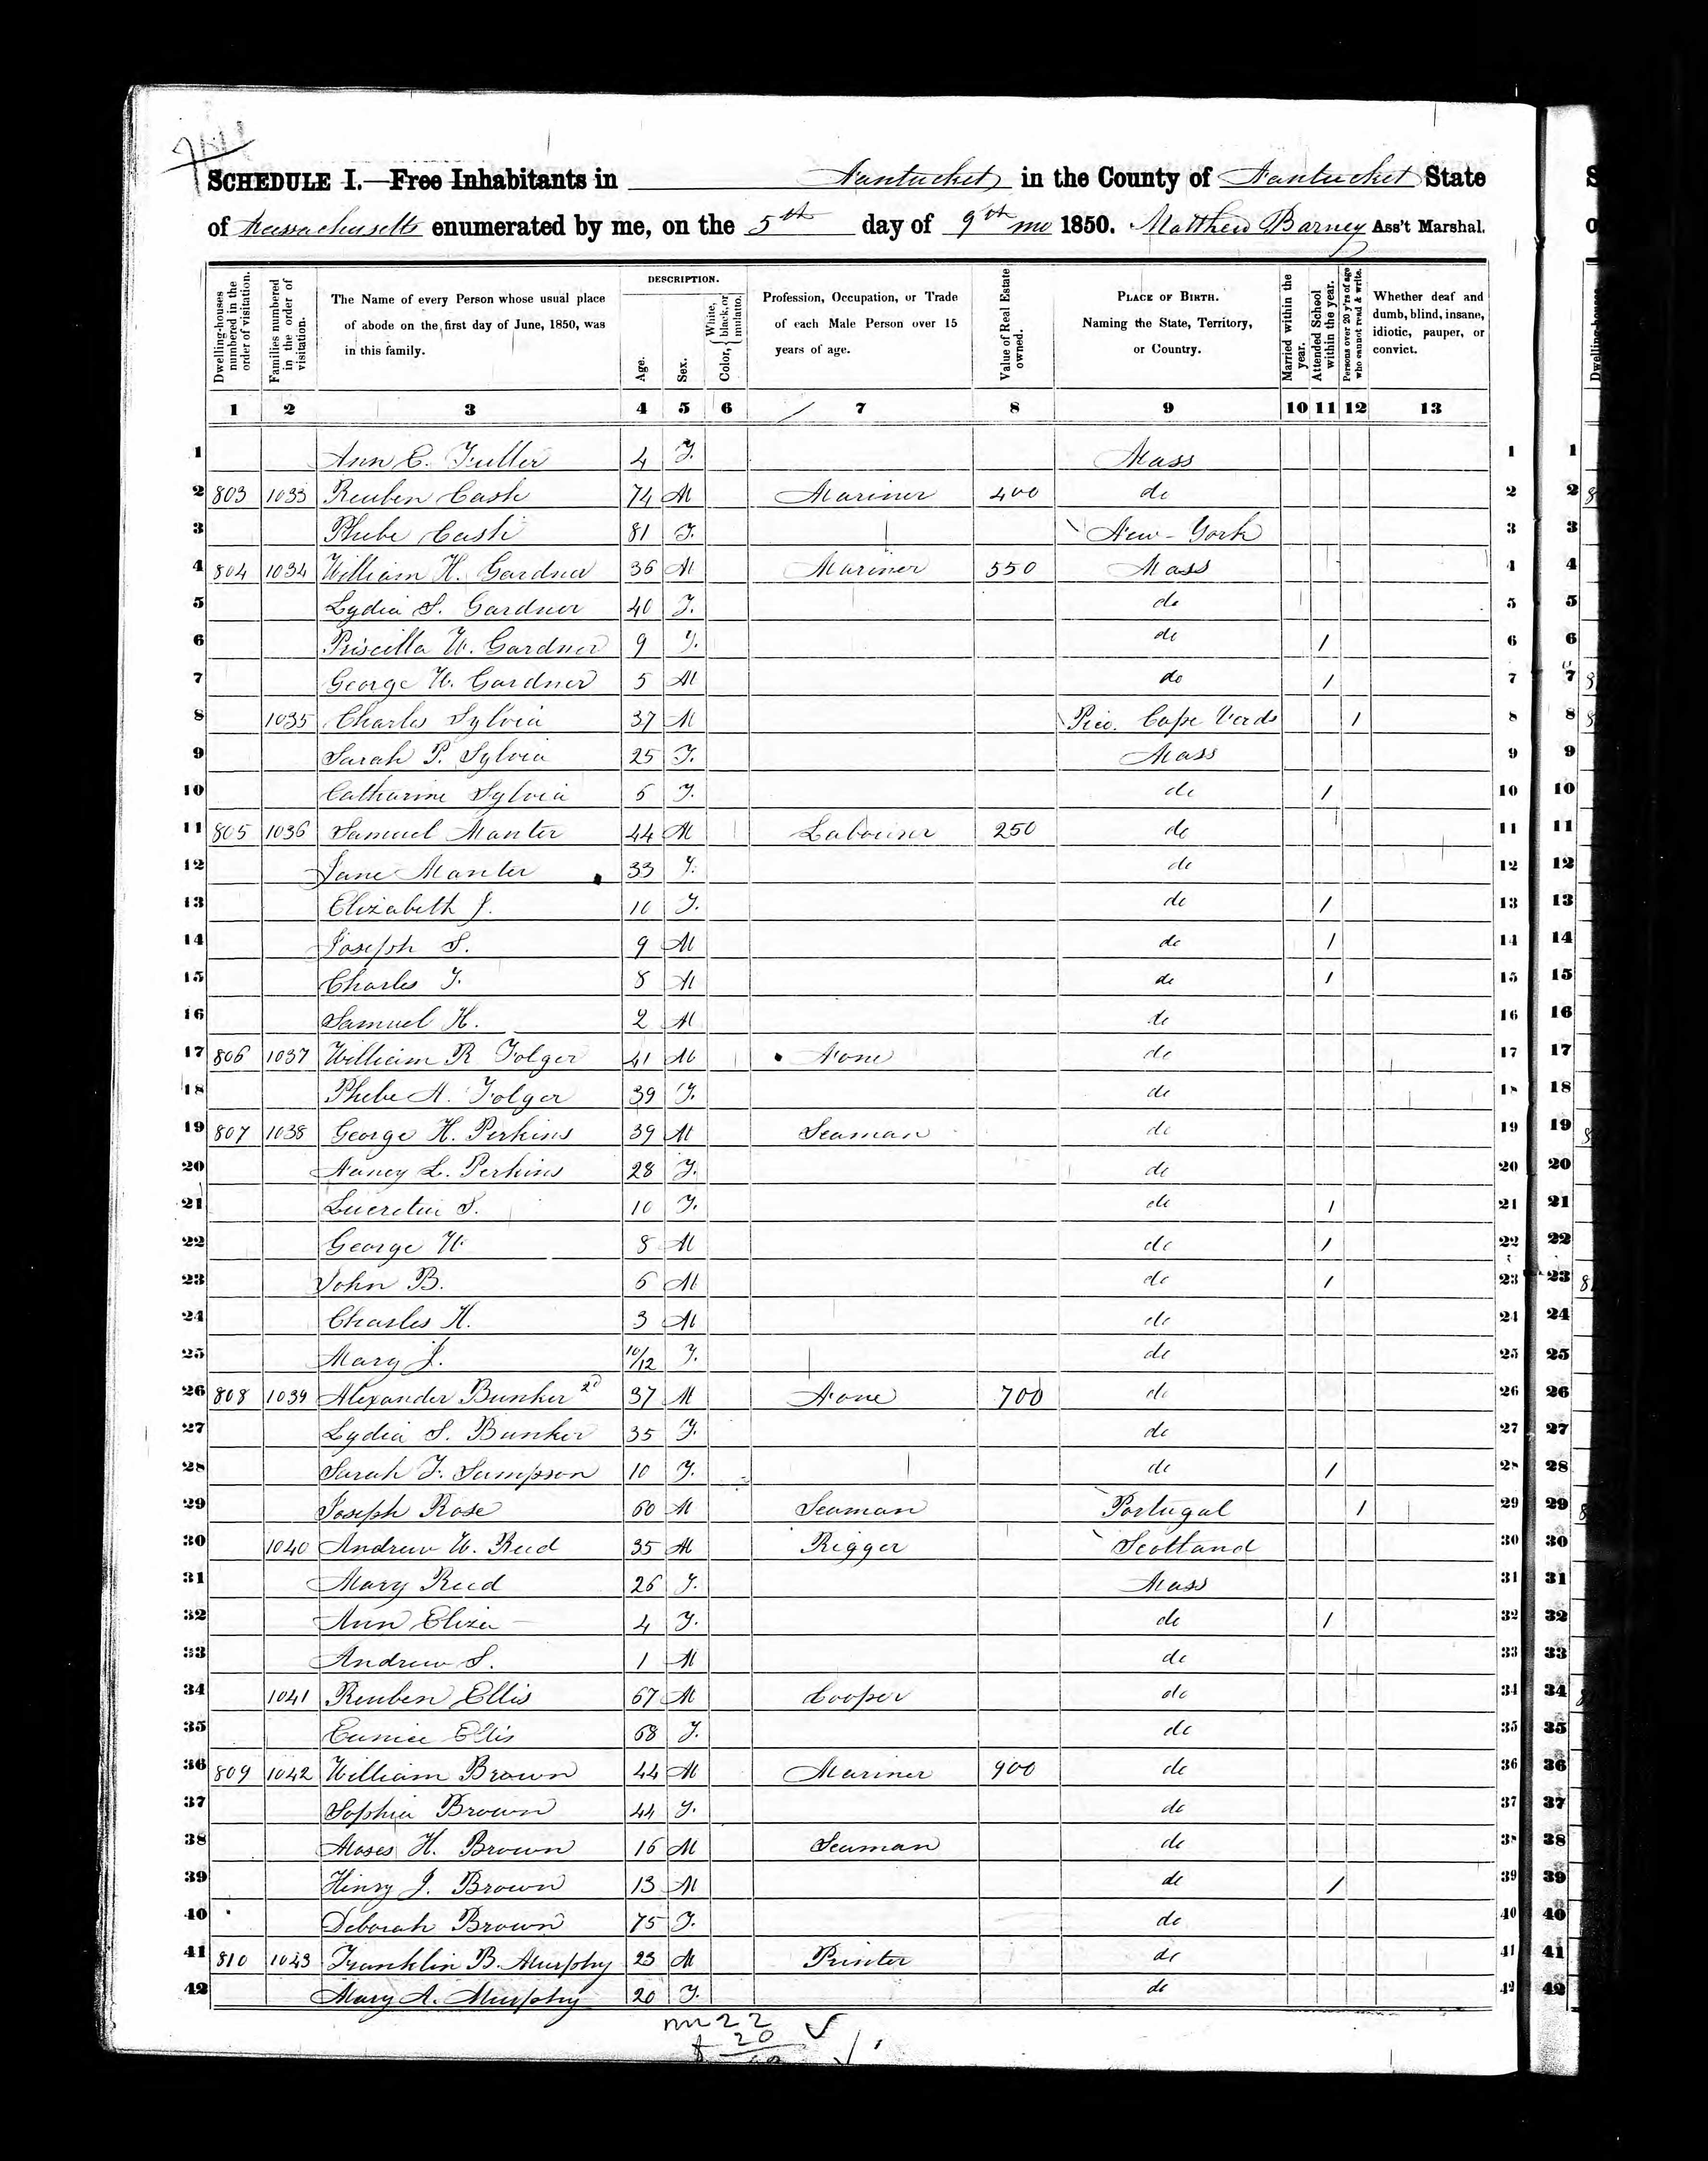 SCHEDULE I.—Free Inhabitants in Nantucket in the County of Nantucket State
of Massachusetts enumerated by me, on the 5th day of 9th mo 1850. Matthew Barney Ass't Marshal.
Dwelling-houses numbered in the order of visitation.
Families numbered in the order of visitation.
The Name of every Person whose usual place of abode on the first day of June, 1850, was in this family.
DESCRIPTION.
Age.
Sex.
Color, { White, black, or mulatto.
Profession, Occupation, or Trade of each Male Person over 15 years of age.
Value of Real Estate owned.
PLACE OF BIRTH. Naming the State, Territory, or Country.
Married within the year.
Attended School within the year.
Persons over 20 y'rs of age who cannot read & write.
Whether deaf and dumb, blind, insane, idiotic, pauper, or convict.
1 2 3 4 5 6 7 8 9 10 11 12 13
1 Ann C. Fuller 4 F. Mass 1
2 803 1033 Reuben Cash 74 M Mariner 400 do 2
3 Phebe Cash 81 F. New-York 3
4 804 1034 William H. Gardner 36 M Mariner 550 Mass 4
5 Lydia S. Gardner 40 F. do 5
6 Priscilla W. Gardner 9 F. do 1 6
7 George W. Gardner 5 M do 1 7
8 1035 Charles Sylvia 37 M Pico. Cape Verds 1 8
9 Sarah P. Sylvia 25 F. Mass 9
10 Catharine Sylvia 5 F. do 1 10
11 805 1036 Samuel Manter 44 M Labourer 250 do 11
12 Jane Manter 33 F. do 12
13 Elizabeth J. 10 F. do 1 13
14 Joseph S. 9 M do 1 14
15 Charles F. 8 M do 1 15
16 Samuel H. 2 M do 16
17 806 1037 William R Folger 41 M None do 17
18 Phebe A. Folger 39 F. do 18
19 807 1038 George H. Perkins 39 M Seaman do 19
20 Nancy L. Perkins 28 F. do 20
21 Lucretia S. 10 F. do 1 21
22 George W 8 M do 1 22
23 John B. 6 M do 1 23
24 Charles H. 3 M do 24
25 Mary J. 10/12 F. do 25
26 808 1039 Alexander Bunker 2d 37 M None 700 do 26
27 Lydia S. Bunker 35 F. do 27
28 Sarah F. Sampson 10 F. do 1 28
29 Joseph Rose 60 M Seaman Portugal 1 29
30 1040 Andrew W. Reed 35 M Rigger Scotland 30
31 Mary Reed 26 F. Mass 31
32 Ann Eliza 4 F. do 1 32
33 Andrew S. 1 M do 33
34 1041 Reuben Ellis 67 M Cooper do 34
35 Eunice Ellis 68 F. do 35
36 809 1042 William Brown 44 M Mariner 900 do 36
37 Sophia Brown 44 F. do 37
38 Moses H. Brown 16 M Seaman do 38
39 Henry J. Brown 13 M do 1 39
40 Deborah Brown 75 F. do 40
41 810 1043 Franklin B. Murphy 23 M Printer do 41
42 Mary A. Murphy 20 F. do 42
m 22
f 20